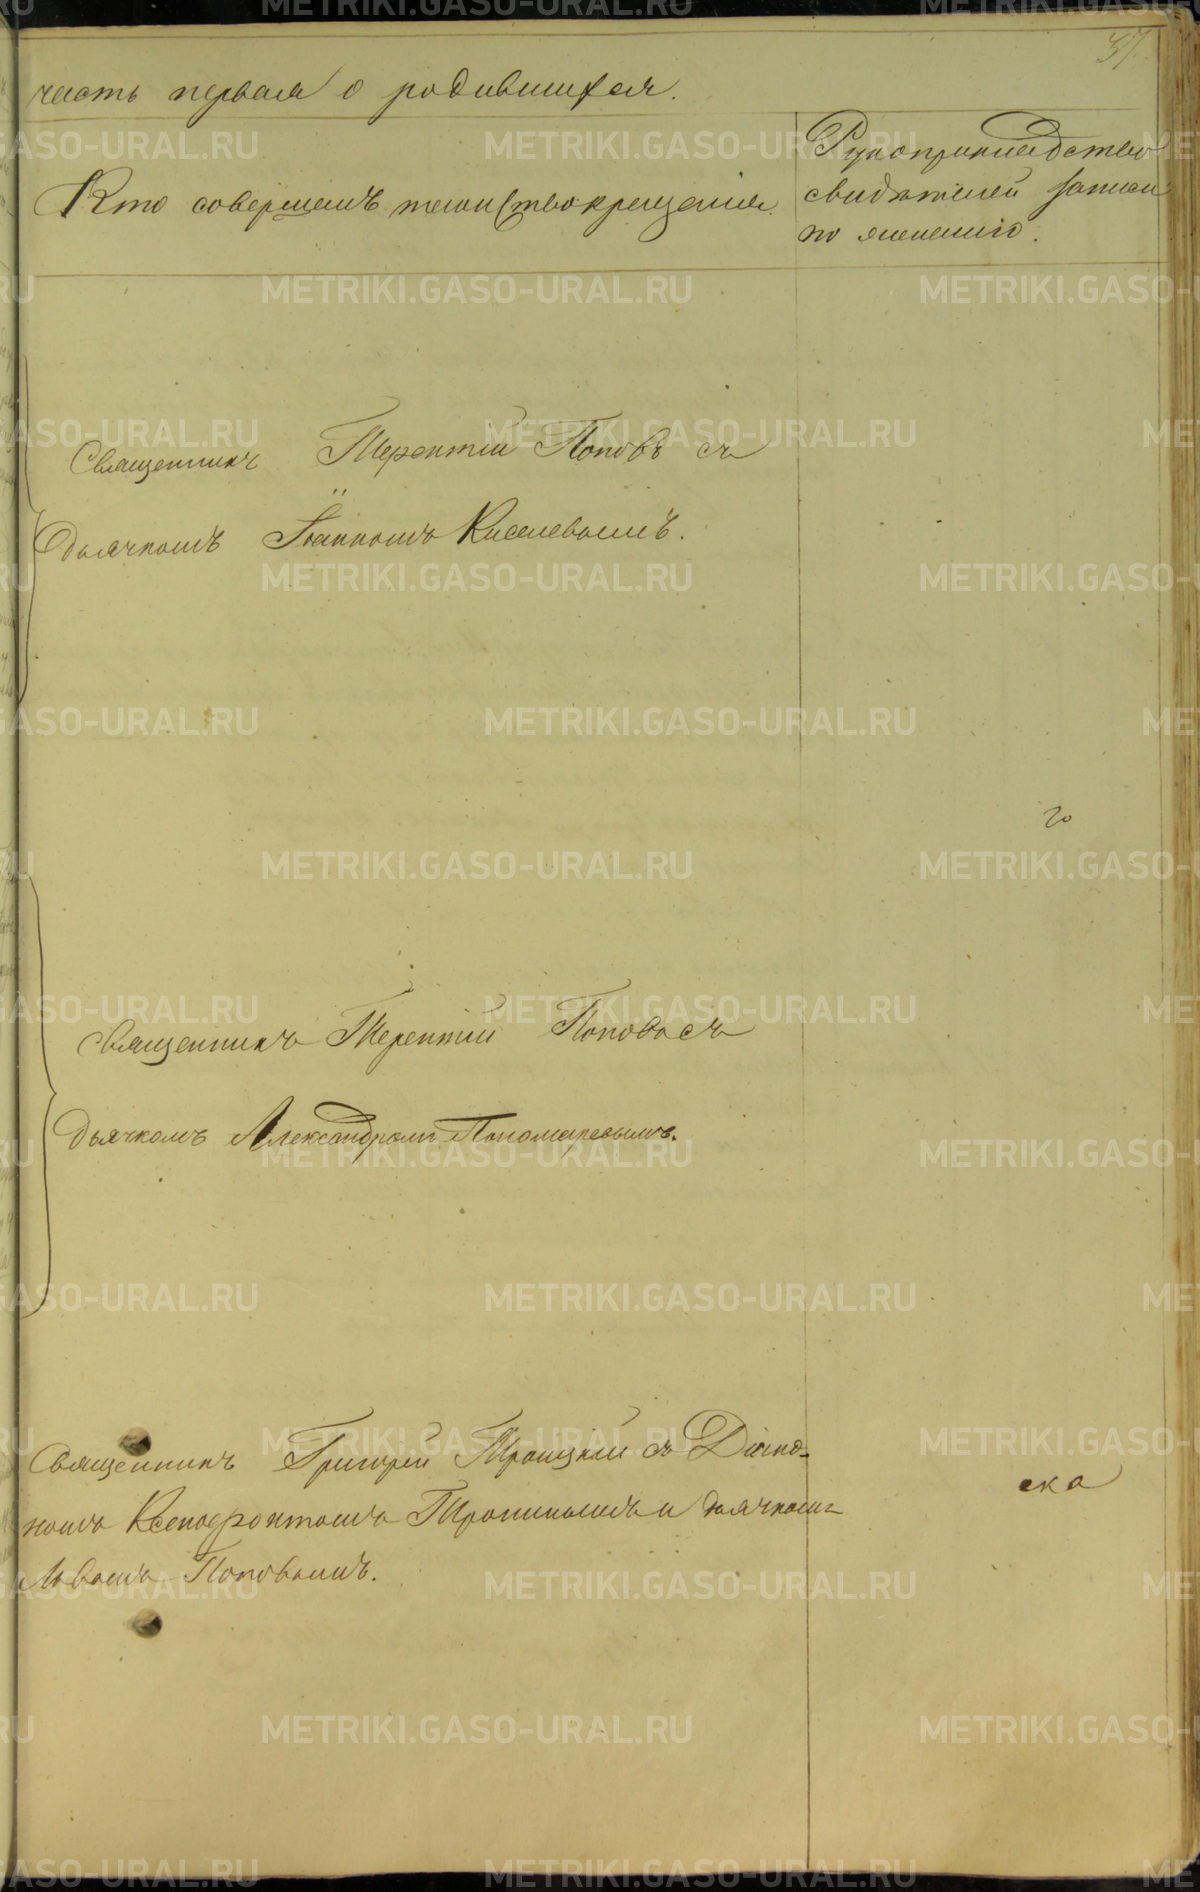 37.
часть первая о родившихся.
Кто совершалъ таинство крещенія.
Рукоприкладство
свидѣтелей записи
по желанію.
Священникъ Терентій Поповъ съ
дьячкомъ Іоанномъ Киселевымъ.
го
Священникъ Терентій Поповъ съ
Дьячкомъ Александромъ Пономаревымъ.
Священникъ Григорій Троицкій съ Діако-
номъ Ксенофонтомъ Тропинымъ и дьячкомъ
Львомъ Поповымъ.
ска
METRIKI.GASO-URAL.RU